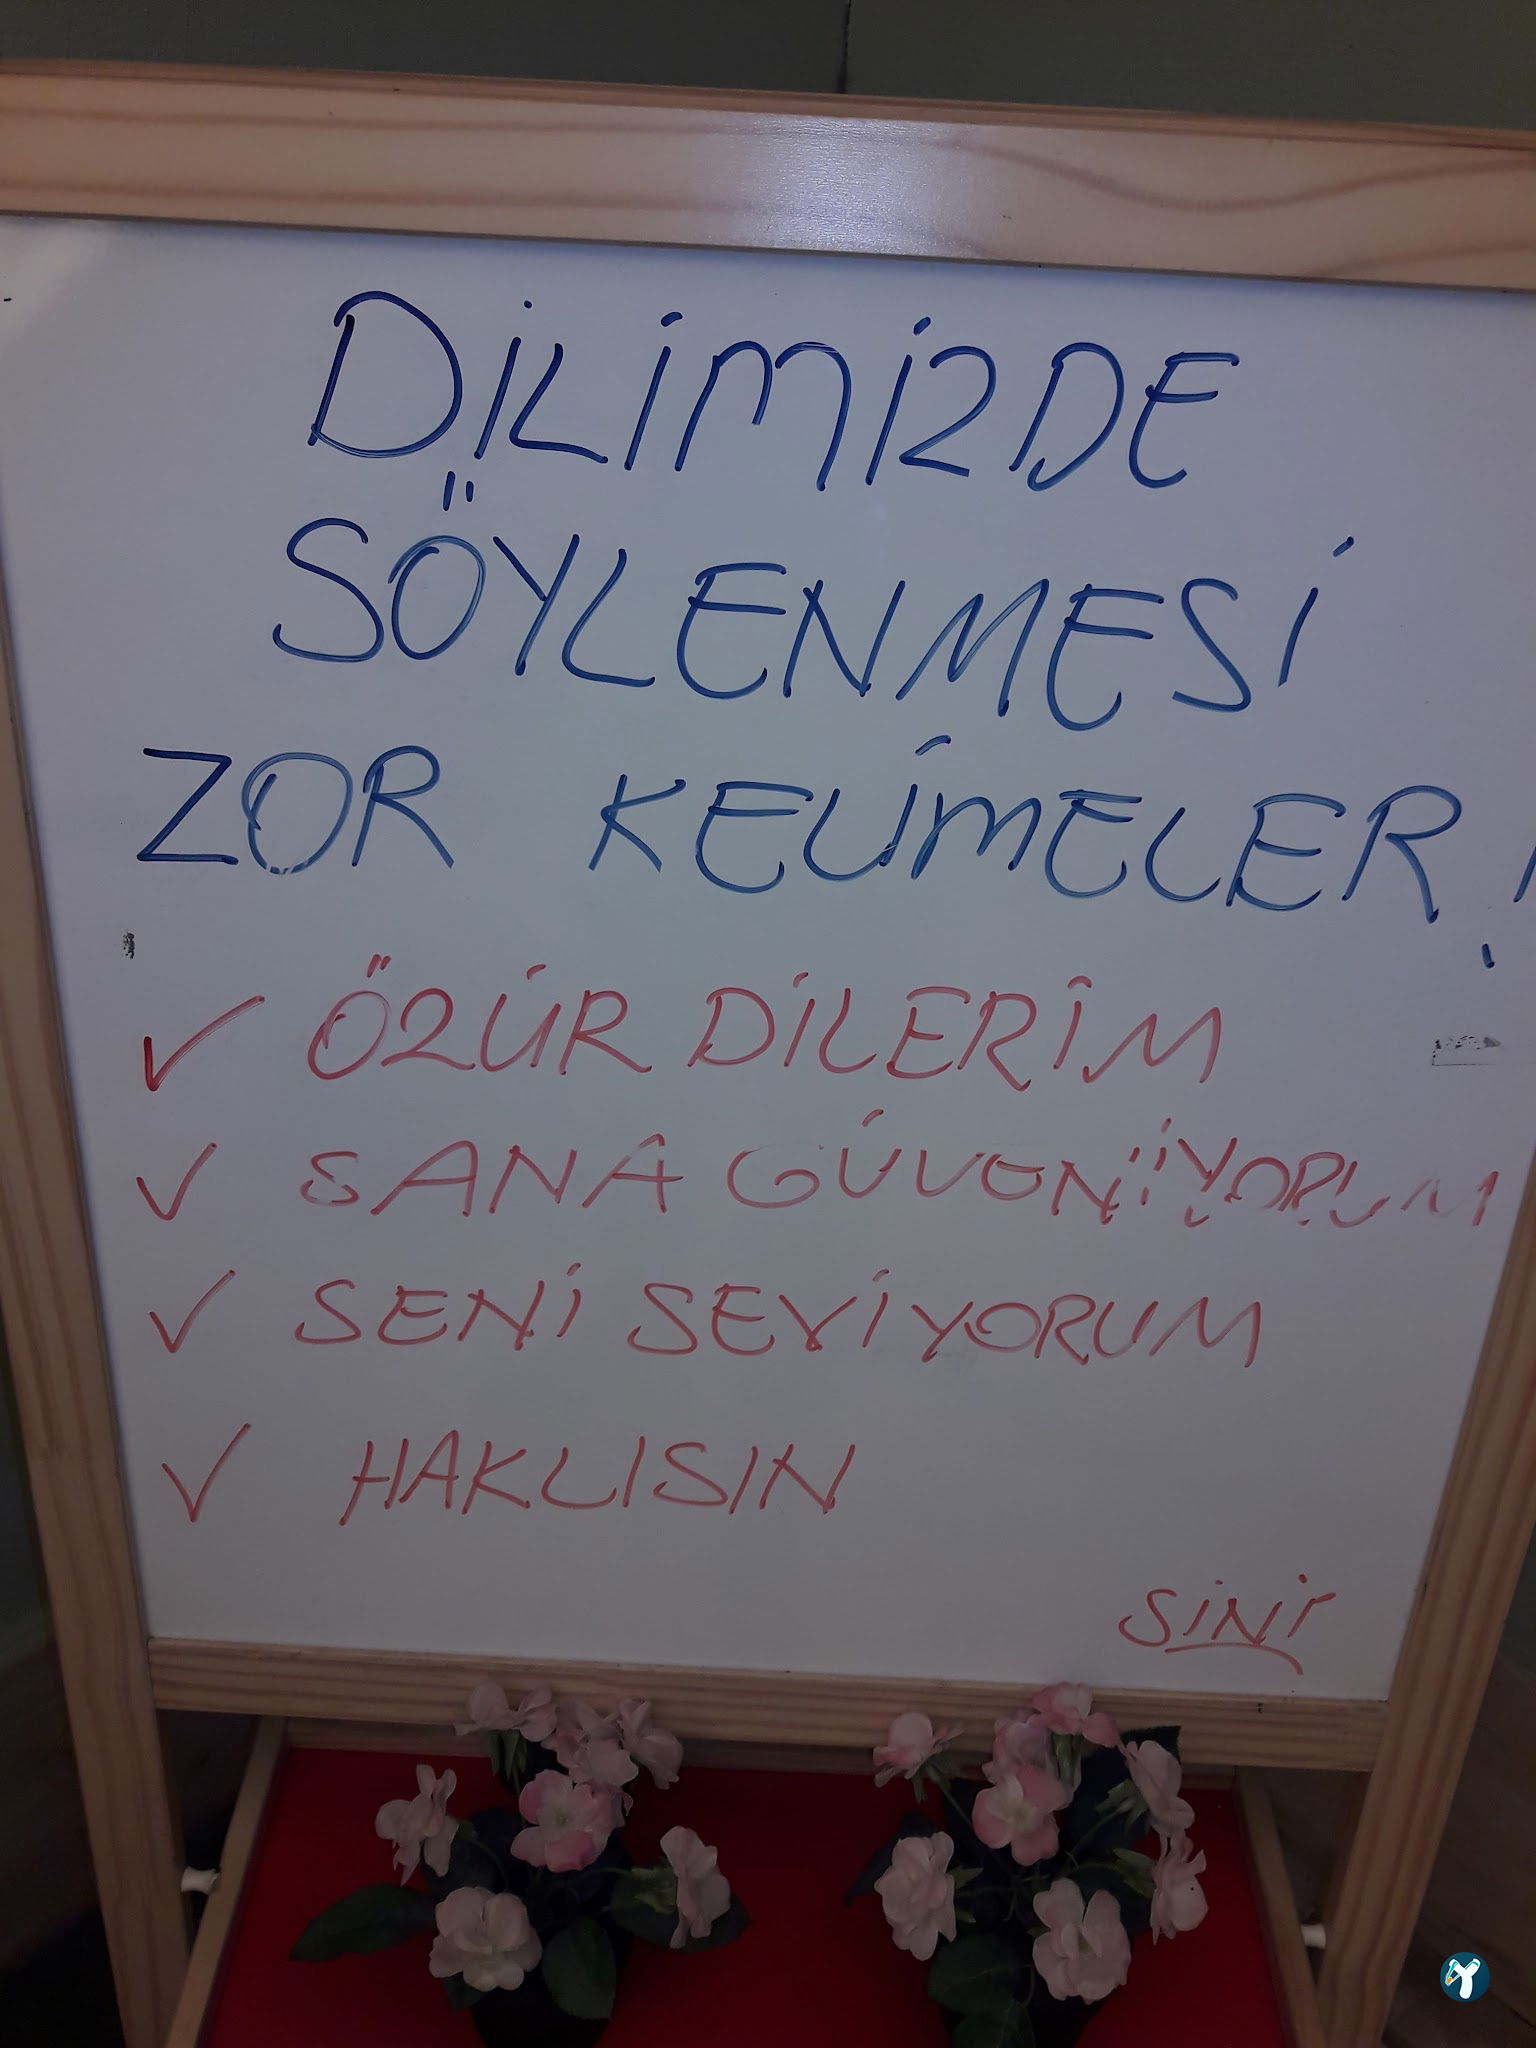 DİLİMİZDE
SÖYLENMESİ
ZOR KELİMELER!
✓ ÖZÜR DİLERİM
✓ SANA GÜVENİYORUM
✓ SENİ SEVİYORUM
✓ HAKLISIN